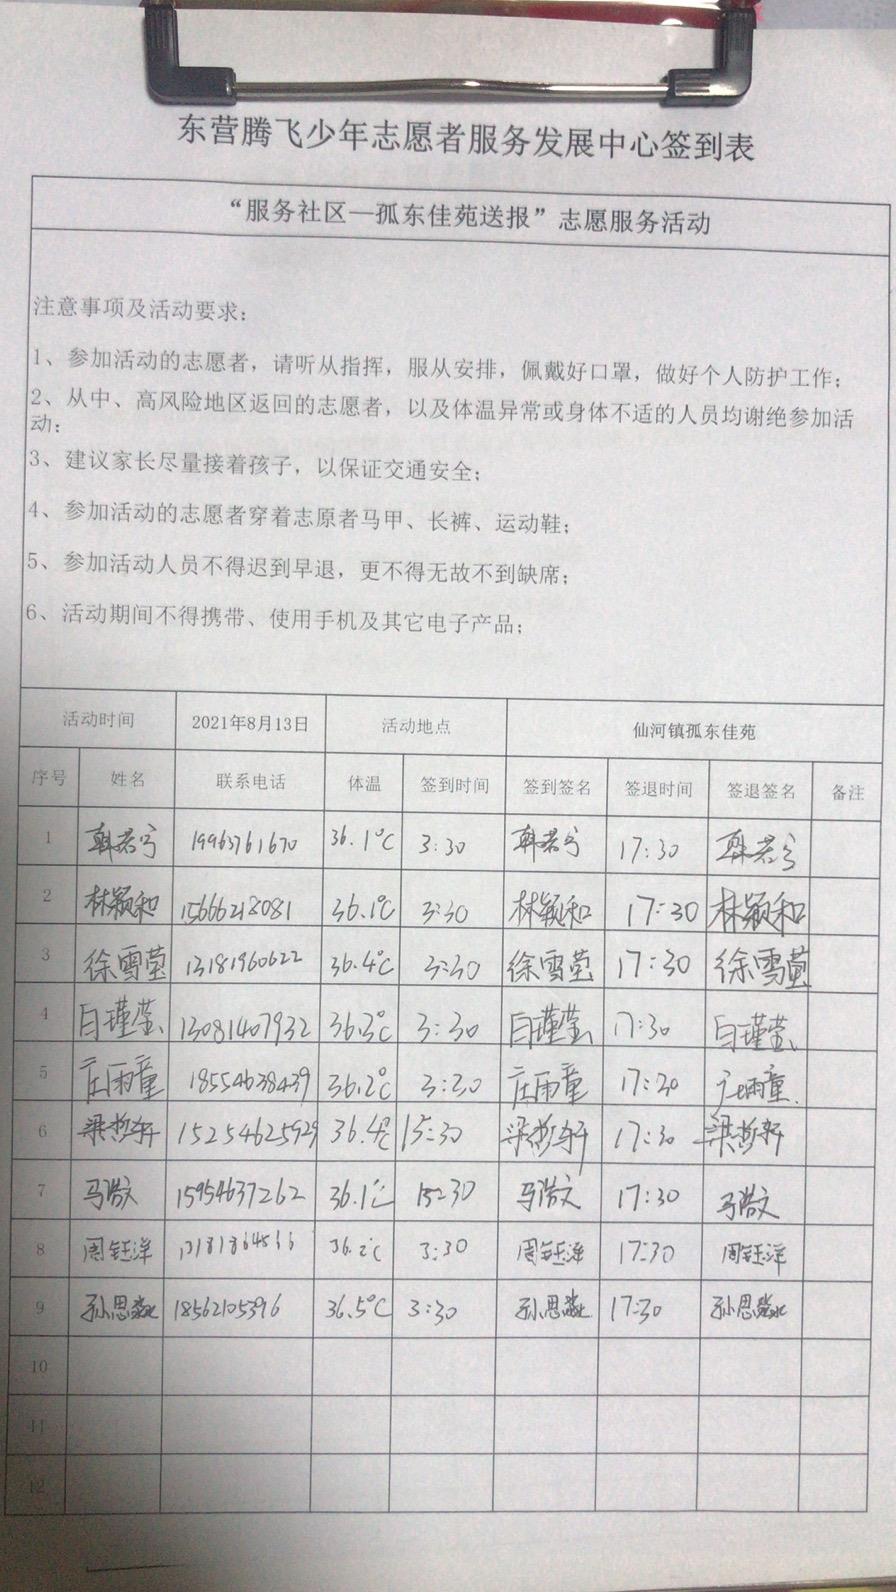 东营腾飞少年志愿者服务发展中心签到表
“服务社区—孤东佳苑送报”志愿服务活动
注意事项及活动要求：
1、参加活动的志愿者，请听从指挥，服从安排，佩戴好口罩，做好个人防护工作；
2、从中、高风险地区返回的志愿者，以及体温异常或身体不适的人员均谢绝参加活
动；
3、建议家长尽量接着孩子，以保证交通安全；
4、参加活动的志愿者穿着志原者马甲、长裤、运动鞋；
5、参加活动人员不得迟到早退，更不得无故不到缺席；
6、活动期间不得携带、使用手机及其它电子产品；
活动时间 2021年8月13日 活动地点 仙河镇孤东佳苑
序号 姓名 联系电话 体温 签到时间 签到签名 签退时间 签退签名 备注
1 韩若兮 19963761670 36.1℃ 3:30 韩若兮 17:30 韩若兮
2 林颖和 15666218081 36.1℃ 3:30 林颖和 17:30 林颖和
3 徐雪莹 13181960622 36.4℃ 3:30 徐雪莹 17:30 徐雪莹
4 白瑾莹 13081407932 36.3℃ 3:30 白瑾莹 17:30 白瑾莹
5 庄雨童 18554638439 36.2℃ 3:30 庄雨童 17:30 庄雨童
6 梁哲轩 15254625929 36.4℃ 15:30 梁哲轩 17:30 梁哲轩
7 马浩文 15954637262 36.1℃ 15:30 马浩文 17:30 马浩文
8 周钰洋 36.2℃ 3:30 周钰洋 17:30 周钰洋
9 孙思淼 18562105396 36.5℃ 3:30 孙思淼 17:30 孙思淼
10
11
12